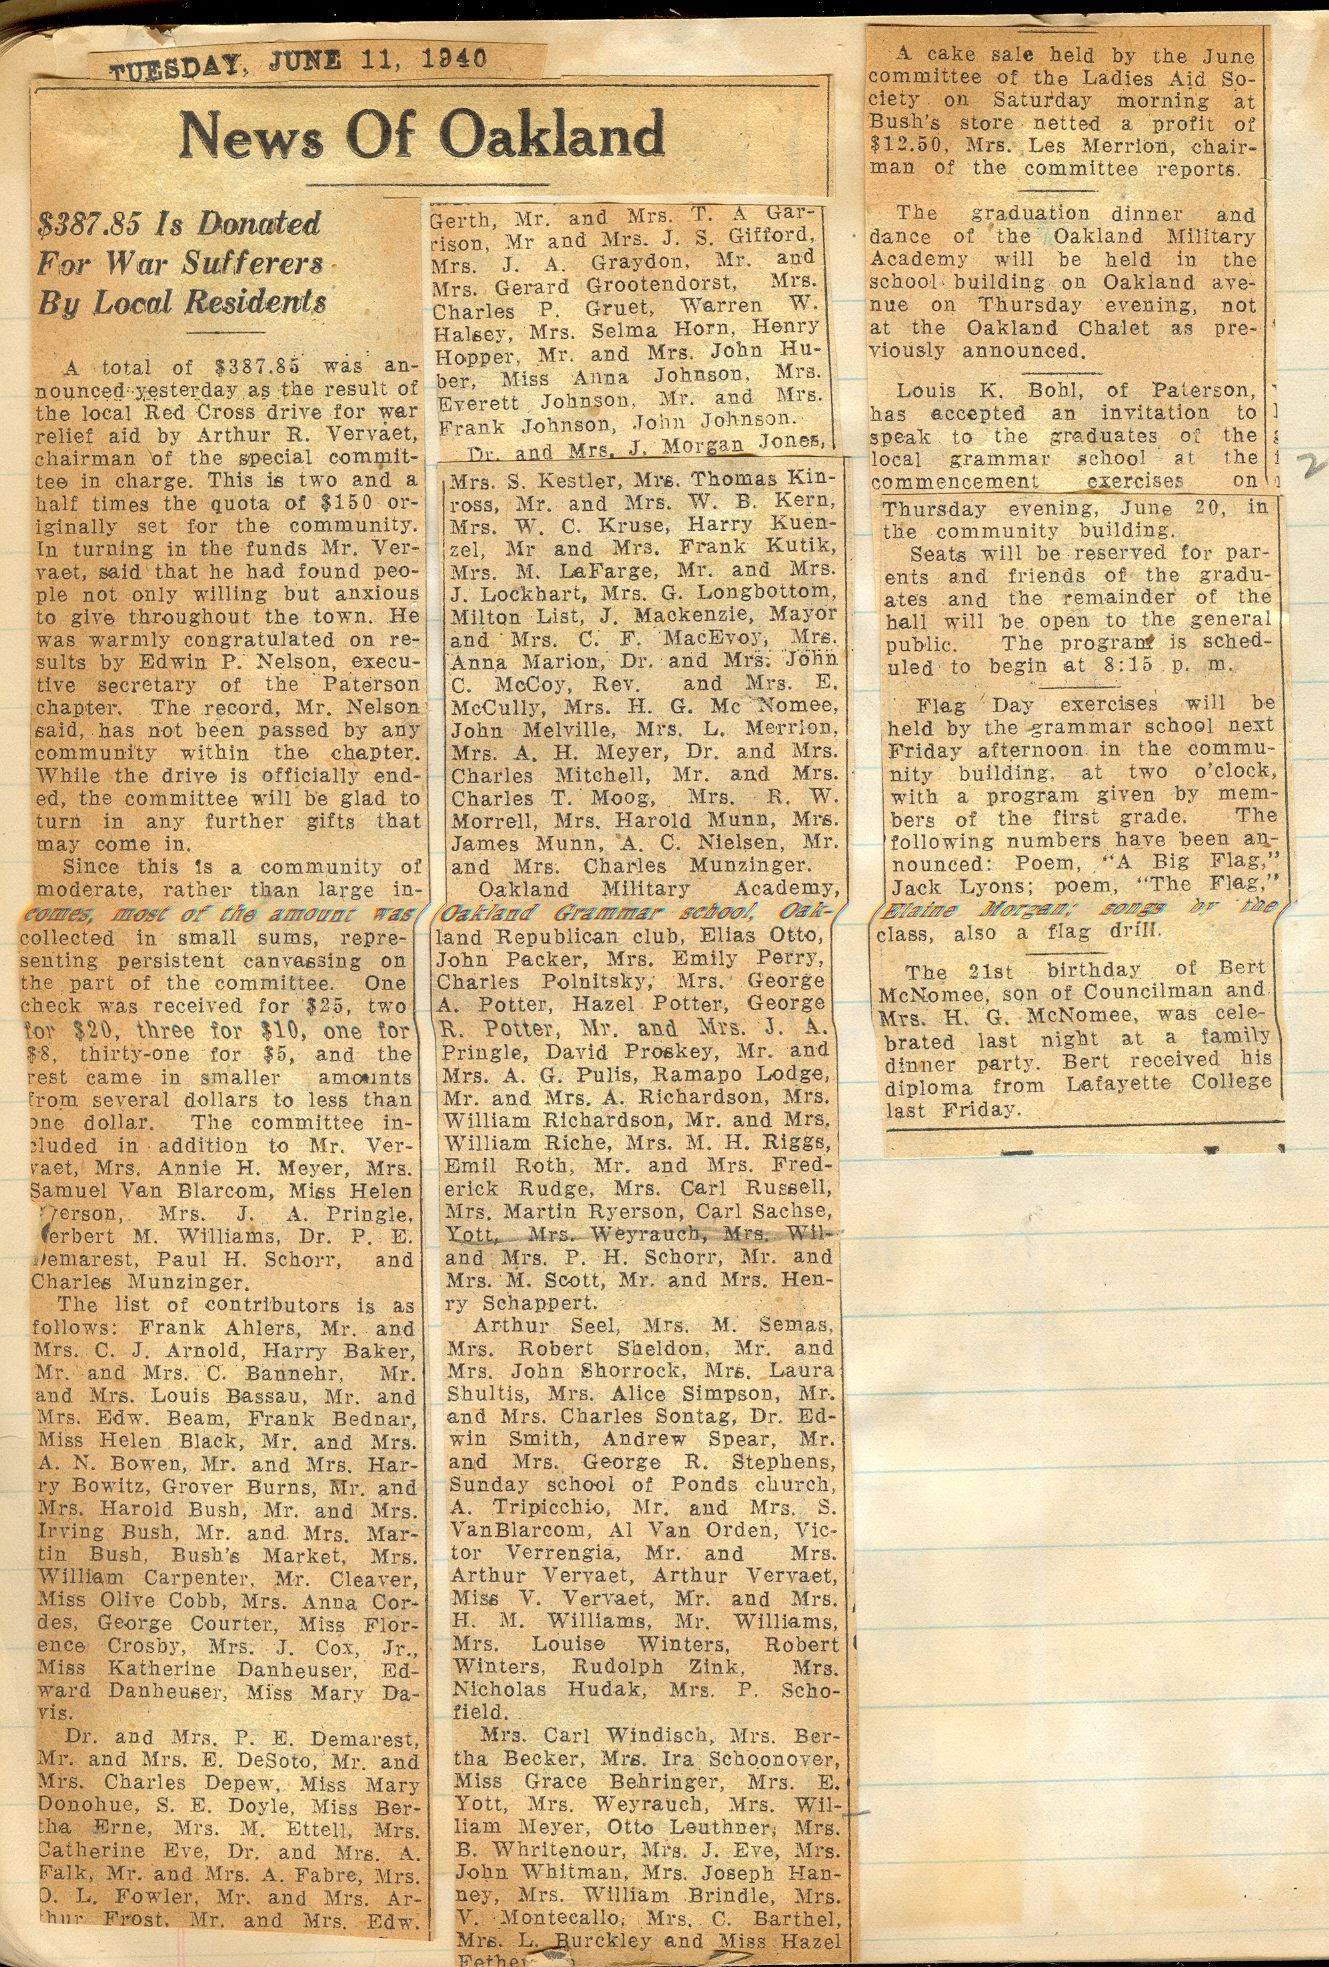 TUESDAY, JUNE 11, 1940
News Of Oakland
$387.85 Is Donated
For War Sufferers
By Local Residents
A total of $387.85 was an-
nounced yesterday as the result of
the local Red Cross drive for war
relief aid by Arthur R. Vervaet,
chairman of the special commit-
tee in charge. This is two and a
half times the quota of $150 or-
iginally set for the community.
In turning in the funds Mr. Ver-
vaet, said that he had found peo-
ple not only willing but anxious
to give throughout the town. He
was warmly congratulated on re-
sults by Edwin P. Nelson, execu-
tive secretary of the Paterson
chapter. The record, Mr. Nelson
said, has not been passed by any
community within the chapter.
While the drive is officially end-
ed, the committee will be glad to
turn in any further gifts that
may come in.
Since this is a community of
moderate, rather than large in-
comes, most of the amount was
collected in small sums, repre-
senting persistent canvassing on
the part of the committee. One
check was received for $25, two
for $20, three for $10, one for
$8, thirty-one for $5, and the
rest came in smaller amounts
from several dollars to less than
one dollar. The committee in-
cluded in addition to Mr. Ver-
vaet, Mrs. Annie H. Meyer, Mrs.
Samuel Van Blarcom, Miss Helen
yerson, Mrs. J. A. Pringle,
erbert M. Williams, Dr. P. E.
Demarest, Paul H. Schorr, and
Charles Munzinger.
The list of contributors is as
follows: Frank Ahlers, Mr. and
Mrs. C. J. Arnold, Harry Baker,
Mr. and Mrs. C. Bannehr, Mr.
and Mrs. Louis Bassau, Mr. and
Mrs. Edw. Beam, Frank Bednar,
Miss Helen Black, Mr. and Mrs.
A. N. Bowen, Mr. and Mrs. Har-
ry Bowitz, Grover Burns, Mr. and
Mrs. Harold Bush, Mr. and Mrs.
Irving Bush, Mr. and Mrs. Mar-
tin Bush, Bush's Market, Mrs.
William Carpenter, Mr. Cleaver,
Miss Olive Cobb, Mrs. Anna Cor-
des, George Courter, Miss Flor-
ence Crosby, Mrs. J. Cox, Jr.,
Miss Katherine Danheuser, Ed-
ward Danheuser, Miss Mary Da-
vis.
Dr. and Mrs. P. E. Demarest,
Mr. and Mrs. E. DeSoto, Mr. and
Mrs. Charles Depew, Miss Mary
Donohue, S. E. Doyle, Miss Ber-
tha Erne, Mrs. M. Ettell, Mrs.
Catherine Eve, Dr. and Mrs. A.
Falk, Mr. and Mrs. A. Fabre, Mrs.
O. L. Fowler, Mr. and Mrs. Ar-
thur Frost, Mr. and Mrs. Edw.
Gerth, Mr. and Mrs. T. A Gar-
rison, Mr and Mrs. J. S. Gifford,
Mrs. J. A. Graydon, Mr. and
Mrs. Gerard Grootendorst, Mrs.
Charles P. Gruet, Warren W.
Halsey, Mrs. Selma Horn, Henry
Hopper, Mr. and Mrs. John Hu-
ber, Miss Anna Johnson, Mrs.
Everett Johnson, Mr. and Mrs.
Frank Johnson, John Johnson.
Dr. and Mrs. J. Morgan Jones,
Mrs. S. Kestler, Mrs. Thomas Kin-
ross, Mr. and Mrs. W. B. Kern,
Mrs. W. C. Kruse, Harry Kuen-
zel, Mr and Mrs. Frank Kutik,
Mrs. M. LaFarge, Mr. and Mrs.
J. Lockhart, Mrs. G. Longbottom,
Milton List, J. Mackenzie, Mayor
and Mrs. C. F. MacEvoy, Mrs.
Anna Marion, Dr. and Mrs. John
C. McCoy, Rev. and Mrs. E.
McCully, Mrs. H. G. Mc Nomee,
John Melville, Mrs. L. Merrion,
Mrs. A. H. Meyer, Dr. and Mrs.
Charles Mitchell, Mr. and Mrs.
Charles T. Moog, Mrs. R. W.
Morrell, Mrs. Harold Munn, Mrs.
James Munn, A. C. Nielsen, Mr.
and Mrs. Charles Munzinger.
Oakland Military Academy,
Oakland Grammar school, Oak-
land Republican club, Elias Otto,
John Packer, Mrs. Emily Perry,
Charles Polnitsky, Mrs. George
A. Potter, Hazel Potter, George
R. Potter, Mr. and Mrs. J. A.
Pringle, David Proskey, Mr. and
Mrs. A. G. Pulis, Ramapo Lodge,
Mr. and Mrs. A. Richardson, Mrs.
William Richardson, Mr. and Mrs.
William Riche, Mrs. M. H. Riggs,
Emil Roth, Mr. and Mrs. Fred-
erick Rudge, Mrs. Carl Russell,
Mrs. Martin Ryerson, Carl Sachse,
Yott, Mrs. Weyrauch, Mrs. Wil-
and Mrs. P. H. Schorr, Mr. and
Mrs. M. Scott, Mr. and Mrs. Hen-
ry Schappert.
Arthur Seel, Mrs. M. Semas,
Mrs. Robert Sheldon, Mr. and
Mrs. John Shorrock, Mrs. Laura
Shultis, Mrs. Alice Simpson, Mr.
and Mrs. Charles Sontag, Dr. Ed-
win Smith, Andrew Spear, Mr.
and Mrs. George R. Stephens,
Sunday school of Ponds church,
A. Tripicchio, Mr. and Mrs. S.
VanBlarcom, Al Van Orden, Vic-
tor Verrengia, Mr. and Mrs.
Arthur Vervaet, Arthur Vervaet,
Miss V. Vervaet, Mr. and Mrs.
H. M. Williams, Mr. Williams,
Mrs. Louise Winters, Robert
Winters, Rudolph Zink, Mrs.
Nicholas Hudak, Mrs. P. Scho-
field.
Mrs. Carl Windisch, Mrs. Ber-
tha Becker, Mrs. Ira Schoonover,
Miss Grace Behringer, Mrs. E.
Yott, Mrs. Weyrauch, Mrs. Wil-
liam Meyer, Otto Leuthner, Mrs.
B. Whritenour, Mrs. J. Eve, Mrs.
John Whitman, Mrs. Joseph Han-
ney, Mrs. William Brindle, Mrs.
V. Montecallo, Mrs. C. Barthel,
Mrs. L. Burckley and Miss Hazel
A cake sale held by the June
committee of the Ladies Aid So-
ciety on Saturday morning at
Bush's store netted a profit of
$12.50, Mrs. Les Merrion, chair-
man of the committee reports.
The graduation dinner and
dance of the Oakland Military
Academy will be held in the
school building on Oakland ave-
nue on Thursday evening, not
at the Oakland Chalet as pre-
viously announced.
Louis K. Bohl, of Paterson,
has accepted an invitation to
speak to the graduates of the
local grammar school at the
commencement exercises on
Thursday evening, June 20, in
the community building.
Seats will be reserved for par-
ents and friends of the gradu-
ates and the remainder of the
hall will be open to the general
public. The program is sched-
uled to begin at 8:15 p. m.
Flag Day exercises will be
held by the grammar school next
Friday afternoon in the commu-
nity building, at two o'clock,
with a program given by mem-
bers of the first grade. The
following numbers have been an-
nounced: Poem, "A Big Flag,"
Jack Lyons; poem, "The Flag,"
Elaine Morgan; songs by the
class, also a flag drill.
The 21st birthday of Bert
McNomee, son of Councilman and
Mrs. H. G. McNomee, was cele-
brated last night at a family
dinner party. Bert received his
diploma from Lafayette College
last Friday.
2